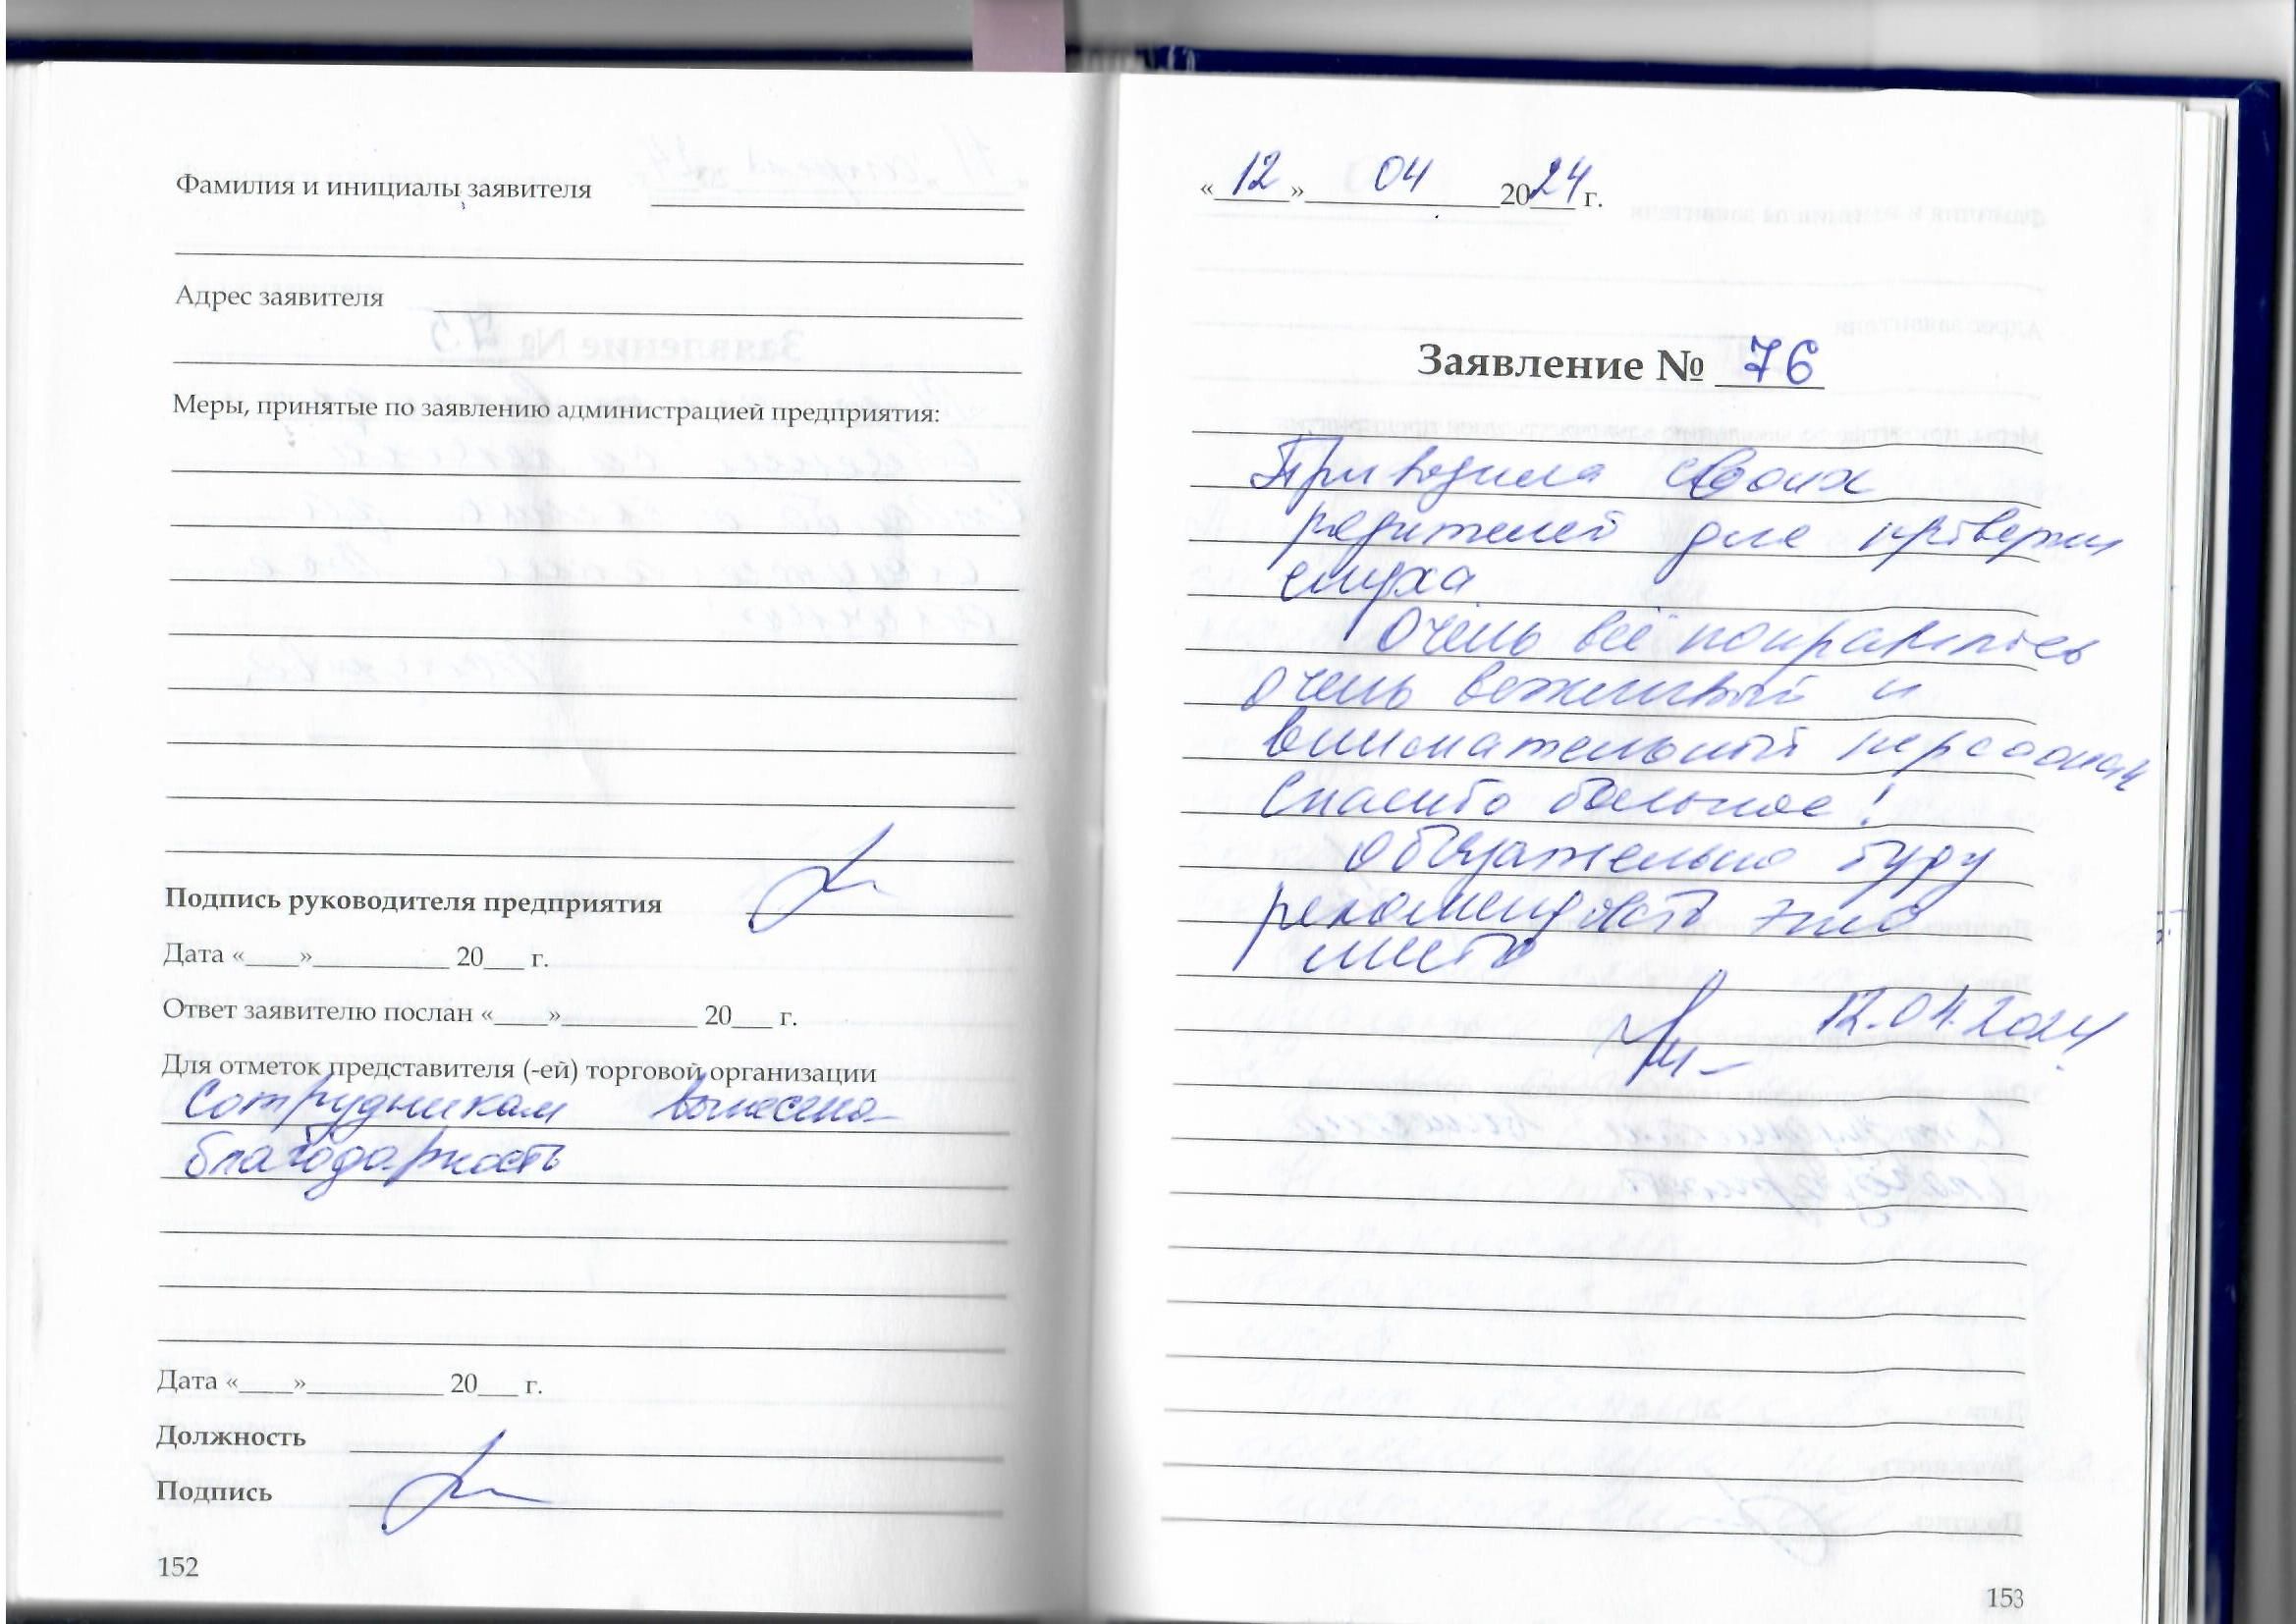 Фамилия и инициалы заявителя
Адрес заявителя
Меры, принятые по заявлению администрацией предприятия:
Подпись руководителя предприятия
Дата «____»__________ 20___ г.
Ответ заявителю послан «____»__________ 20___ г.
Для отметок представителя (-ей) торговой организации
Сотрудникам вынесена
благодарность
Дата «____»__________ 20___ г.
Должность
Подпись
152
«12» 04 2024 г.
Заявление № 76
Приводила своих
родителей для проверки
слуха
Очень всё понравилось
очень вежливый и
внимательный персонал
Спасибо большое!
Обязательно буду
рекомендовать это
место
12.04.2024
153